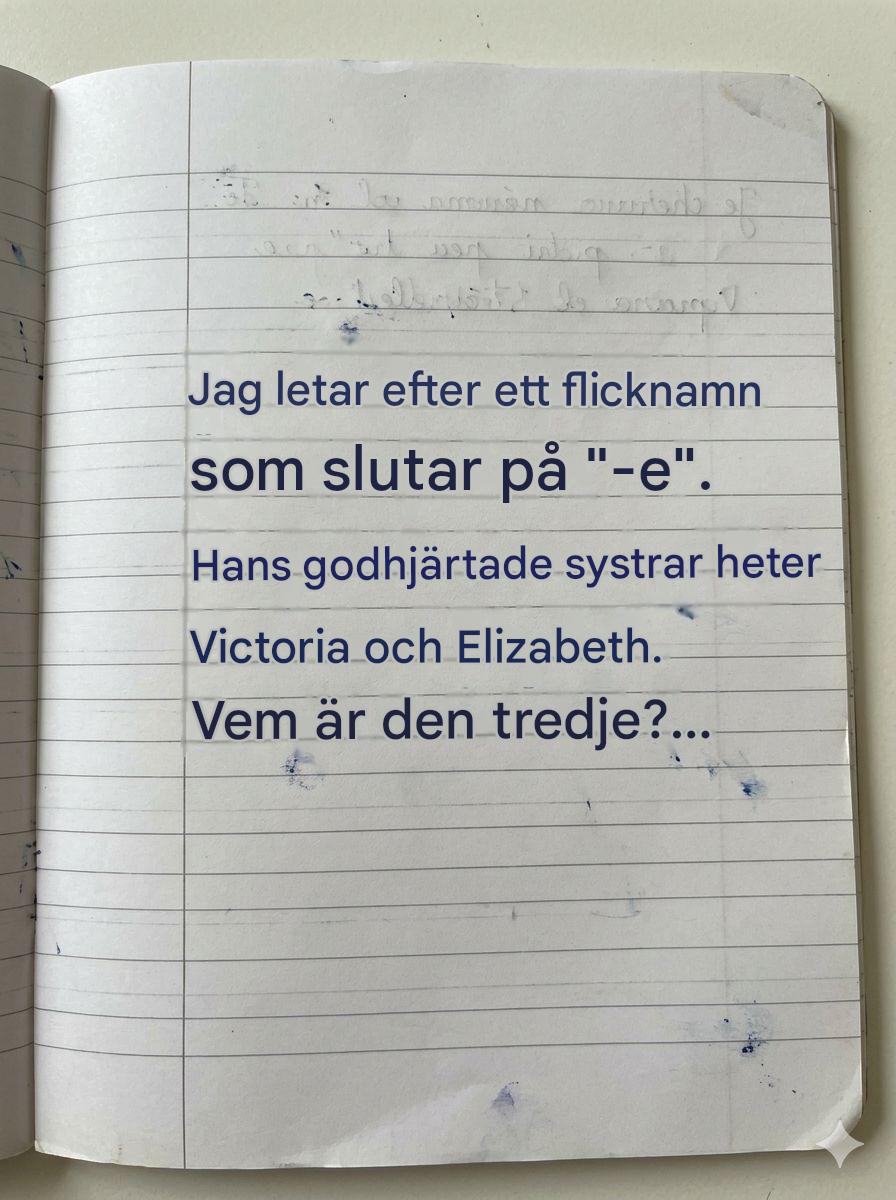 Jag letar efter ett flicknamn
som slutar på "-e".
Hans godhjärtade systrar heter
Victoria och Elizabeth.
Vem är den tredje?...